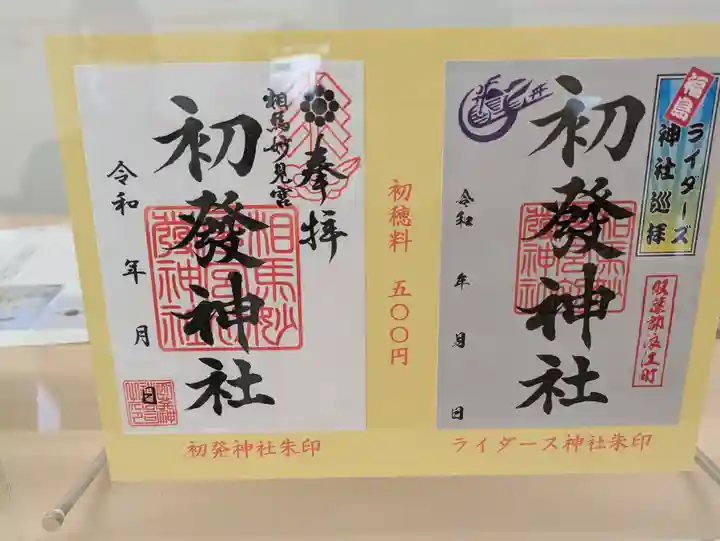 奉拝
相馬妙見宮
初發神社
相馬妙
發神社
令和 年 月 日
初発神社朱印
初穂料 五〇〇円
福島
ライダーズ
神社巡拝
双葉郡浪江町
初發神社
相馬妙
發神社
令和 年 月 日
ライダース神社朱印